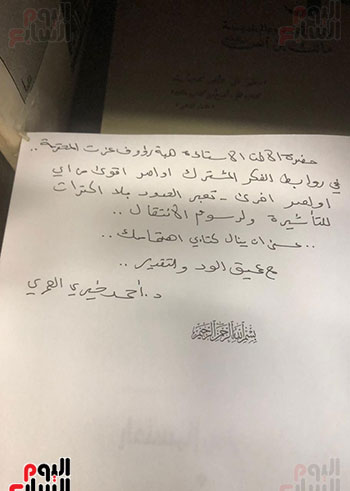 اليوم السابع
حضرة الأخت الاستاذة هبة رؤوف عزت المحترمة ..
في روابط الفكر المشترك اواصر اقوى من اي
اواصر اخرى - تعبر الحدود بلا اكتراث
للتأشيرة ولرسوم الانتقال ..
.. عسى ان ينال كتابي اهتمامك ..
مع عميق الود والتقدير ..
د. أحمد خيري العمري
بسم الله الرحمن الرحيم
اليوم السابع
اليوم السابع